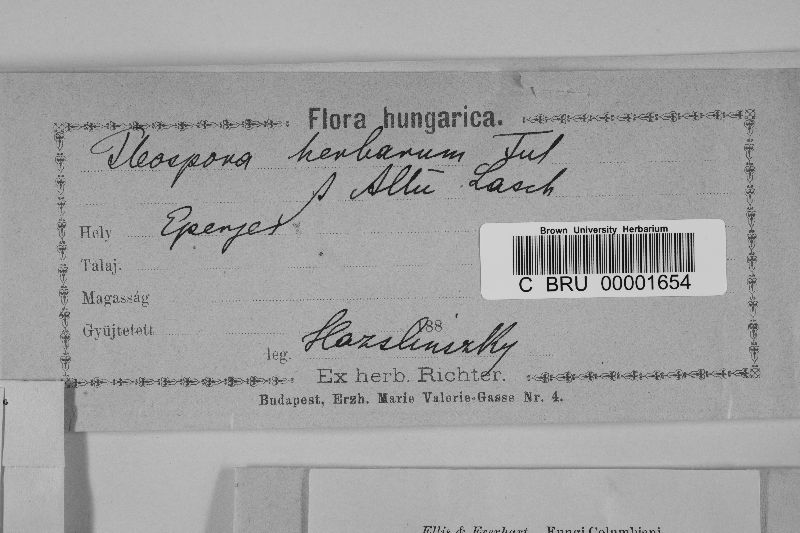 Flora hungarica.
Pleospora herbarum Tul
Allii Lasch
Hely Eperjes
Brown University Herbarium
C BRU 00001654
Talaj.
Magasság
Gyüjtetett 188
leg. Hazslinszky
Ex herb. Richter.
Budapest, Erzh. Marie Valerie-Gasse Nr. 4.
6
Ellis & Everhart Fungi Columbiani